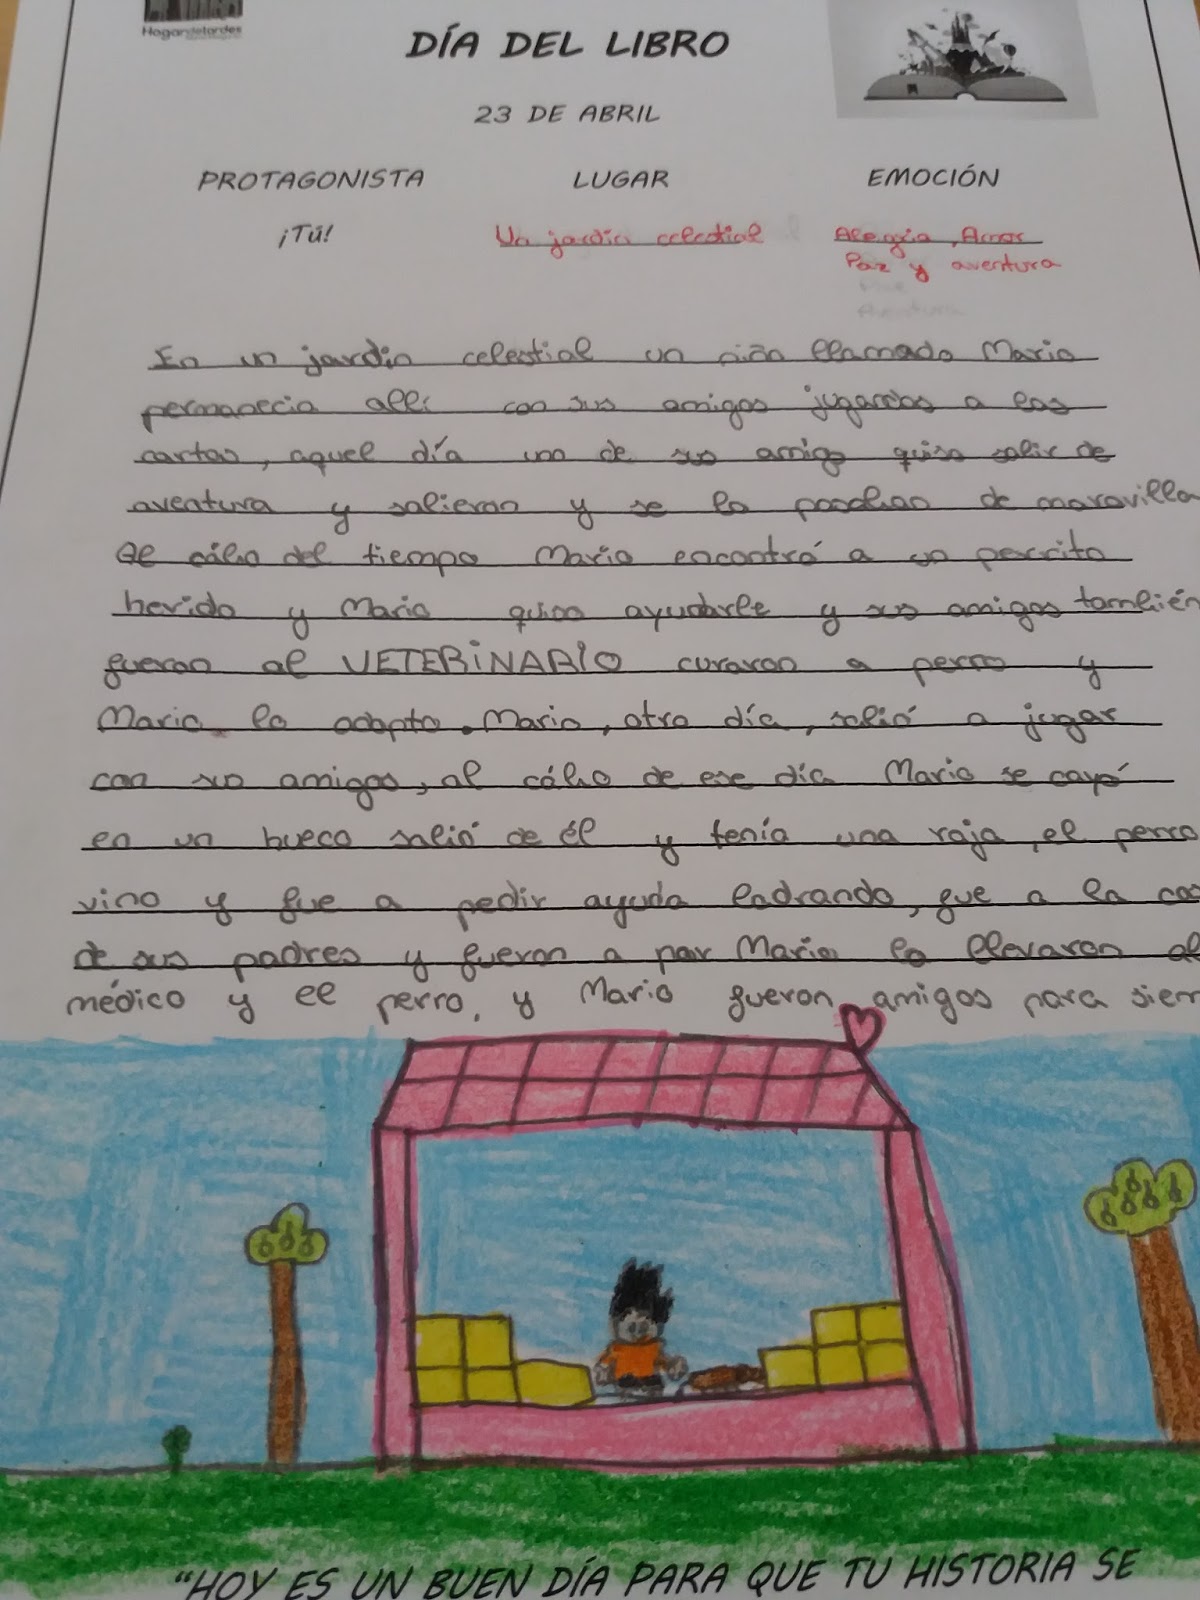 Hogardetardes
DÍA DEL LIBRO
23 DE ABRIL
PROTAGONISTA LUGAR EMOCIÓN
¡Tú! Un jardín celestial Alegría, Amor
Paz y aventura
Aventura
En un jardín celestial un niño llamado Mario
permanecia allí con sus amigos jugandos a las
cartas, aquel día uno de sus amigo quiso salir de
aventura y salieron y se lo de maravilla
Al cábo del tiempo Mario encontró a un perrito
herido y Mario quiso ayudarle y sus amigos también
fueron al VETERINARIO curaron a perro y
Mario lo adopto. Mario, otro día, salió a jugar
con sus amigos, al cábo de ese día Mario se cayó
en un hueco salió de él y tenía una raja, el perro
vino y fue a pedir ayuda ladrando, fue a la cas
de sus padres y fueron a por Mario lo llevaron al
médico y el perro, y Mario fueron amigos para siem
"HOY ES UN BUEN DÍA PARA QUE TU HISTORIA SE